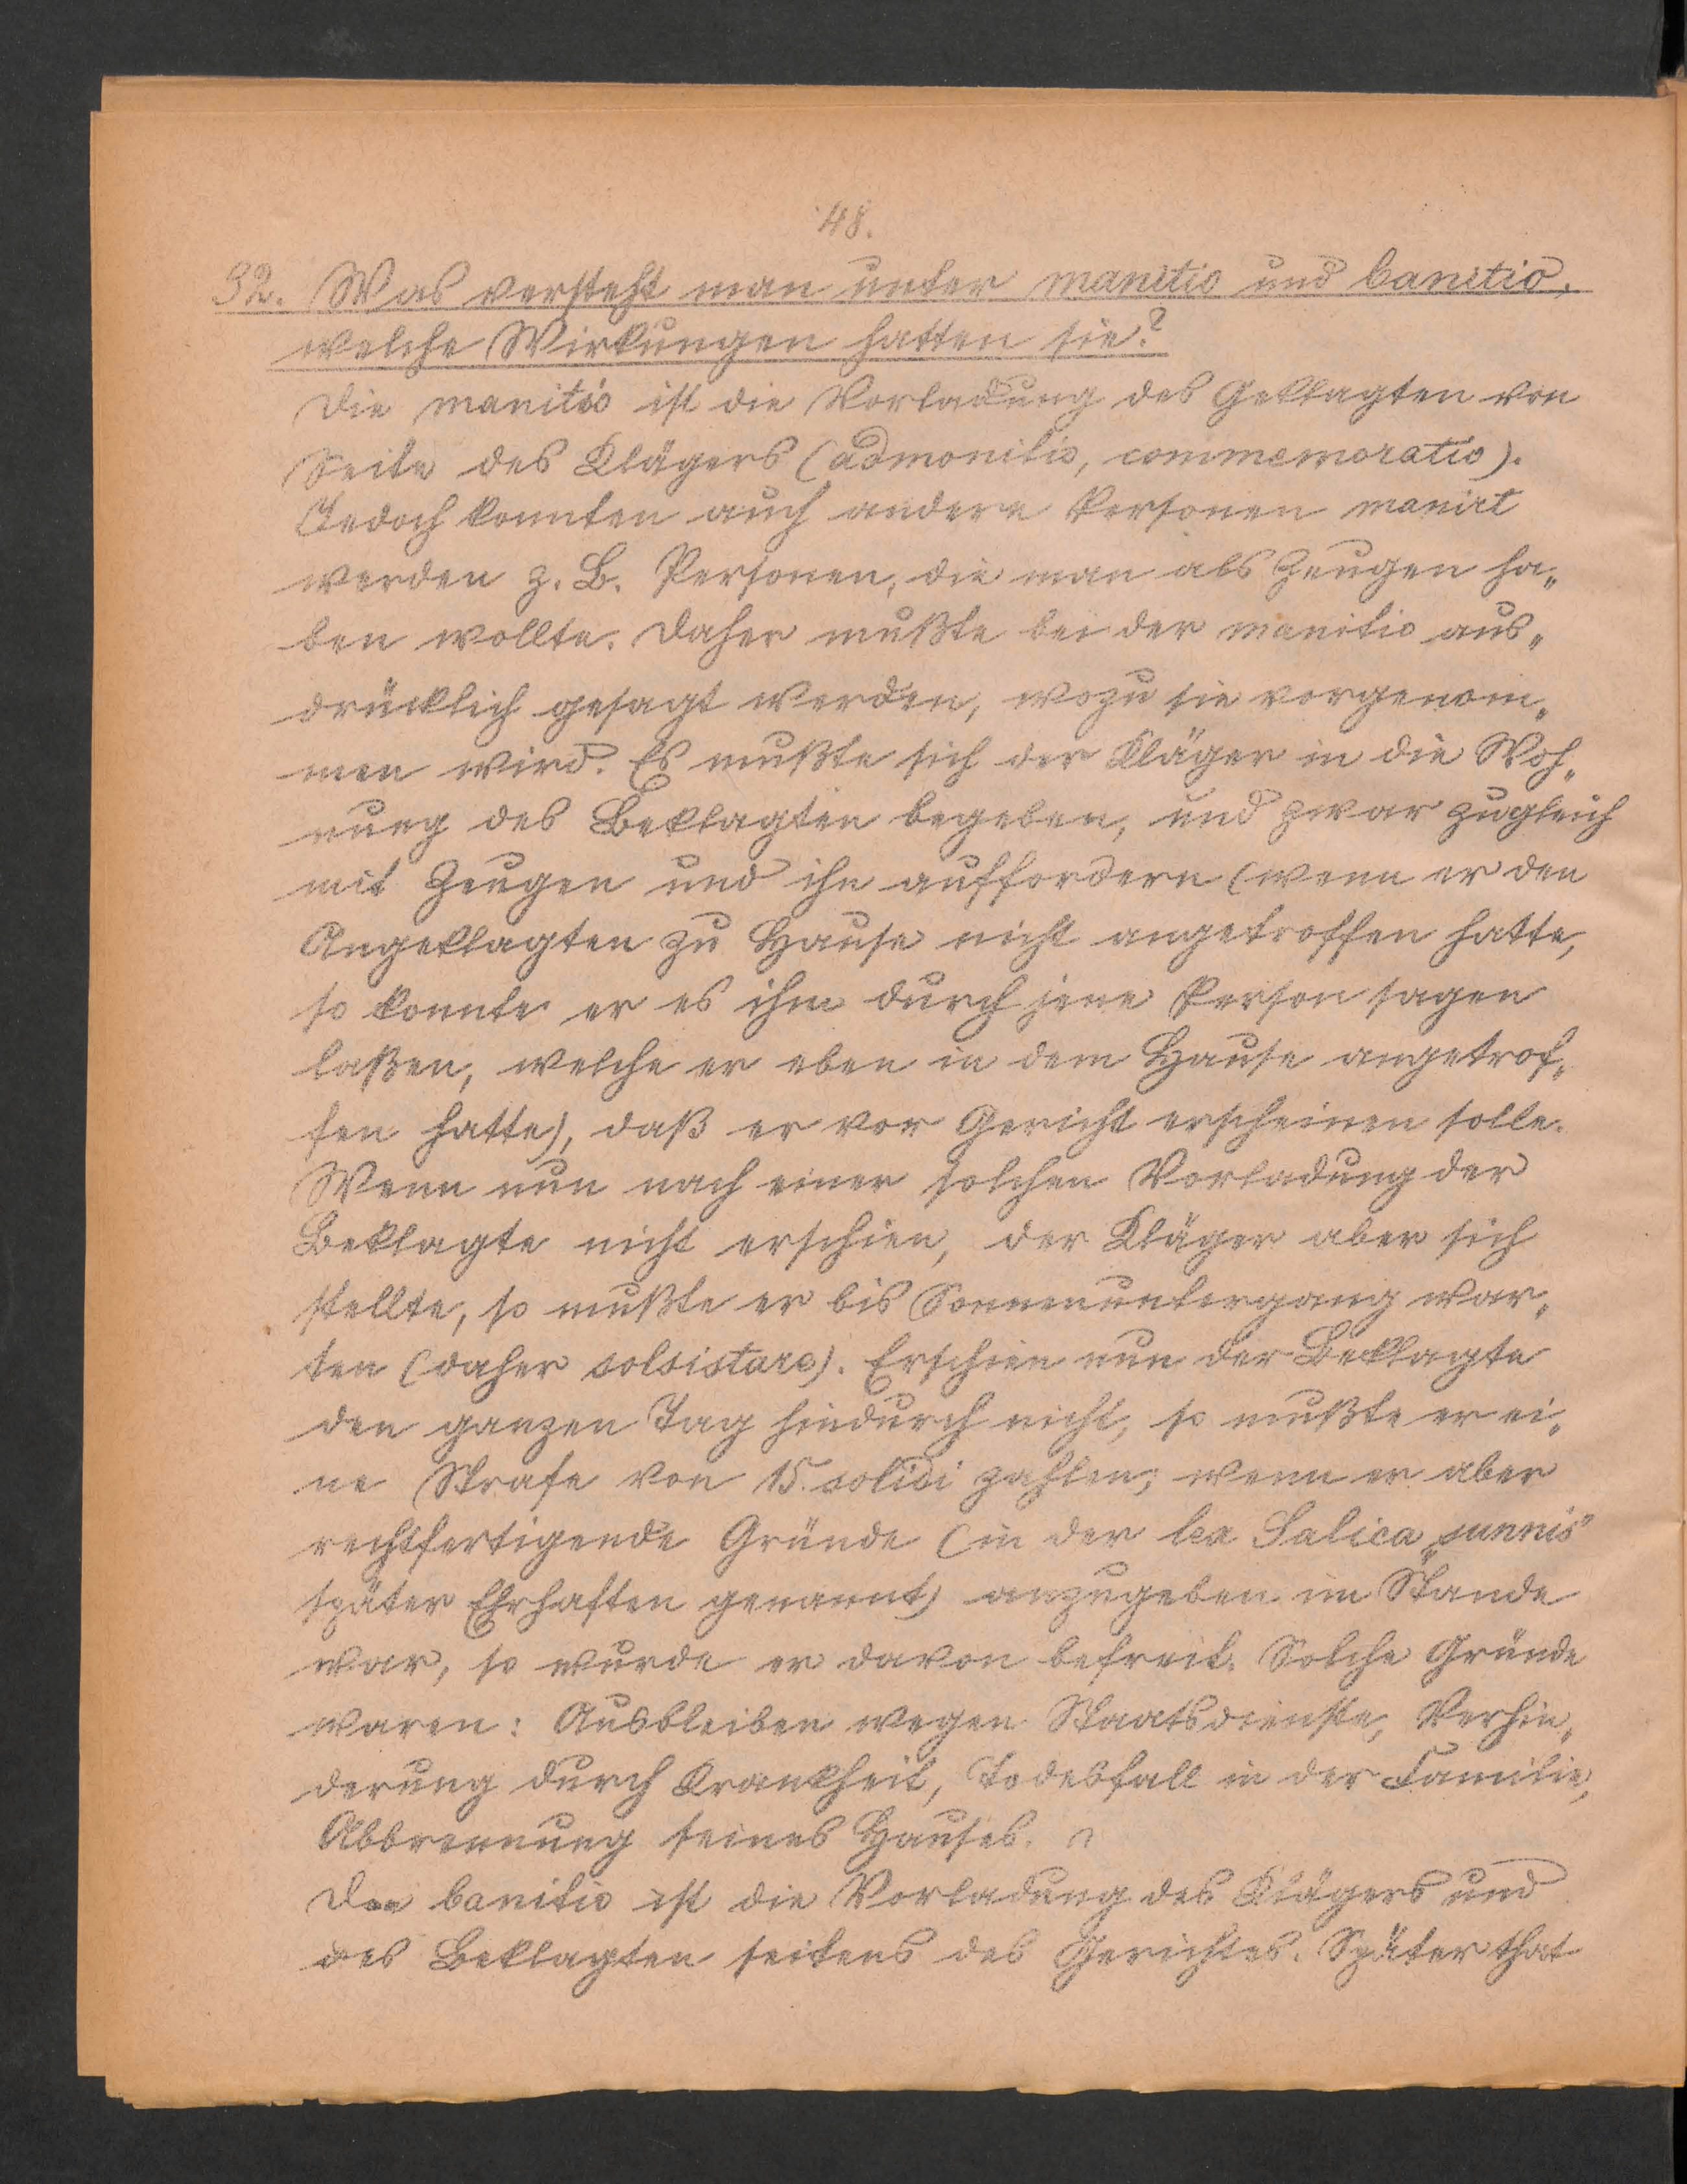 48.
32. Was versteht man unter manitio und banitio,
welche Wirkungen hatten sie?
Die manitio ist die Vorladung des Geklagten von
Seite des Klägers (admonitio, commemoratio).
Jedoch konnten auch andere Personen manirt
werden z. B. Personen, die man als Zeugen ha„
ben wollte. Daher mußte bei der manitio aus„
drücklich gesagt werden, wozu sie vorgenom„
men wird. Es mußte sich der Kläger in die Woh„
nung des Beklagten begeben, und zwar zugleich
mit Zeugen und ihn auffordern (wenn er den
Angeklagten zu Hause nicht angetroffen hatte,
so konnte er es ihm durch jene Person sagen
laßen, welche er eben in dem Hause angetrof„
fen hatte), daß er vor Gericht erscheinen solle.
Wenn nun nach einer solchen Vorladung der
Beklagte nicht erschien, der Kläger aber sich
stellte, so mußte er bis Sonnenuntergang war„
ten (daher solsistare). Erschien nun der Beklagte
den ganzen Tag hindurch nicht, so mußte er ei„
ne Strafe von 15. solidi zahlen; wenn er aber
rechtfertigende Gründe (in der lex Salica „sunnis"
später Ehrhaften genannt) anzugeben im Stande
war, so wurde er davon befreit. Solche Gründe
waren: Ausbleiben wegen Staatsdienste, Verhin„
derung durch Krankheit, Todesfall in der Familie,
Abbrennung seines Hauses.
Die banitio ist die Vorladung des Klägers und
des Beklagten seitens des Gerichtes. Später that